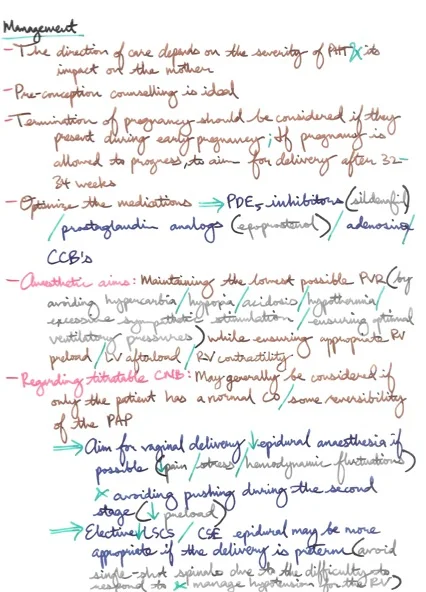 Management
- The direction of care depends on the severity of PHT & its
impact on the mother
- Pre-conception counselling is ideal
- Termination of pregnancy should be considered if they
present during early pregnancy; If pregnancy is
allowed to progress, to aim for delivery after 32-
34 weeks
- Optimize the mediations ⇒ PDE5-inhibitors (sildenafil)
/ prostaglandin analogs (epoprostenol) / adenosine/
CCB's
- Anaesthetic aims: Maintaining the lowest possible PVR (by
avoiding hypercarbia / hypoxia / acidosis / hypothermia /
excessive sympathetic stimulation / ensuring optimal
ventilatory pressures) while ensuring appropriate RV
preload / LV afterload / RV contractility
- Regarding titratable CNB: May generally be considered if
only the patient has a normal CO / some reversibility
of the PAP
⇒ Aim for vaginal delivery ↓ epidural anaesthesia if
possible (↓ pain / stress / hemodynamic fluctuations)
& avoiding pushing during the second
stage (↓ preload)
⇒ Elective LSCS / CSE epidural may be more
appropriate if the delivery is preterm (avoid
single-shot spinals due to the difficulty to
respond to & manage hypotension for the RV)